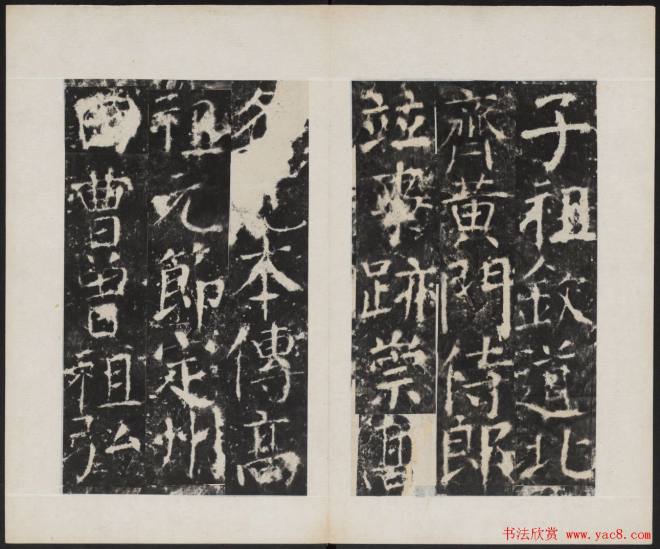 子祖欽道北
齊黃門侍郎
並事跡崇
本傳高
祖元節定州
曹曾祖弘
书法欣赏 www.yac8.com